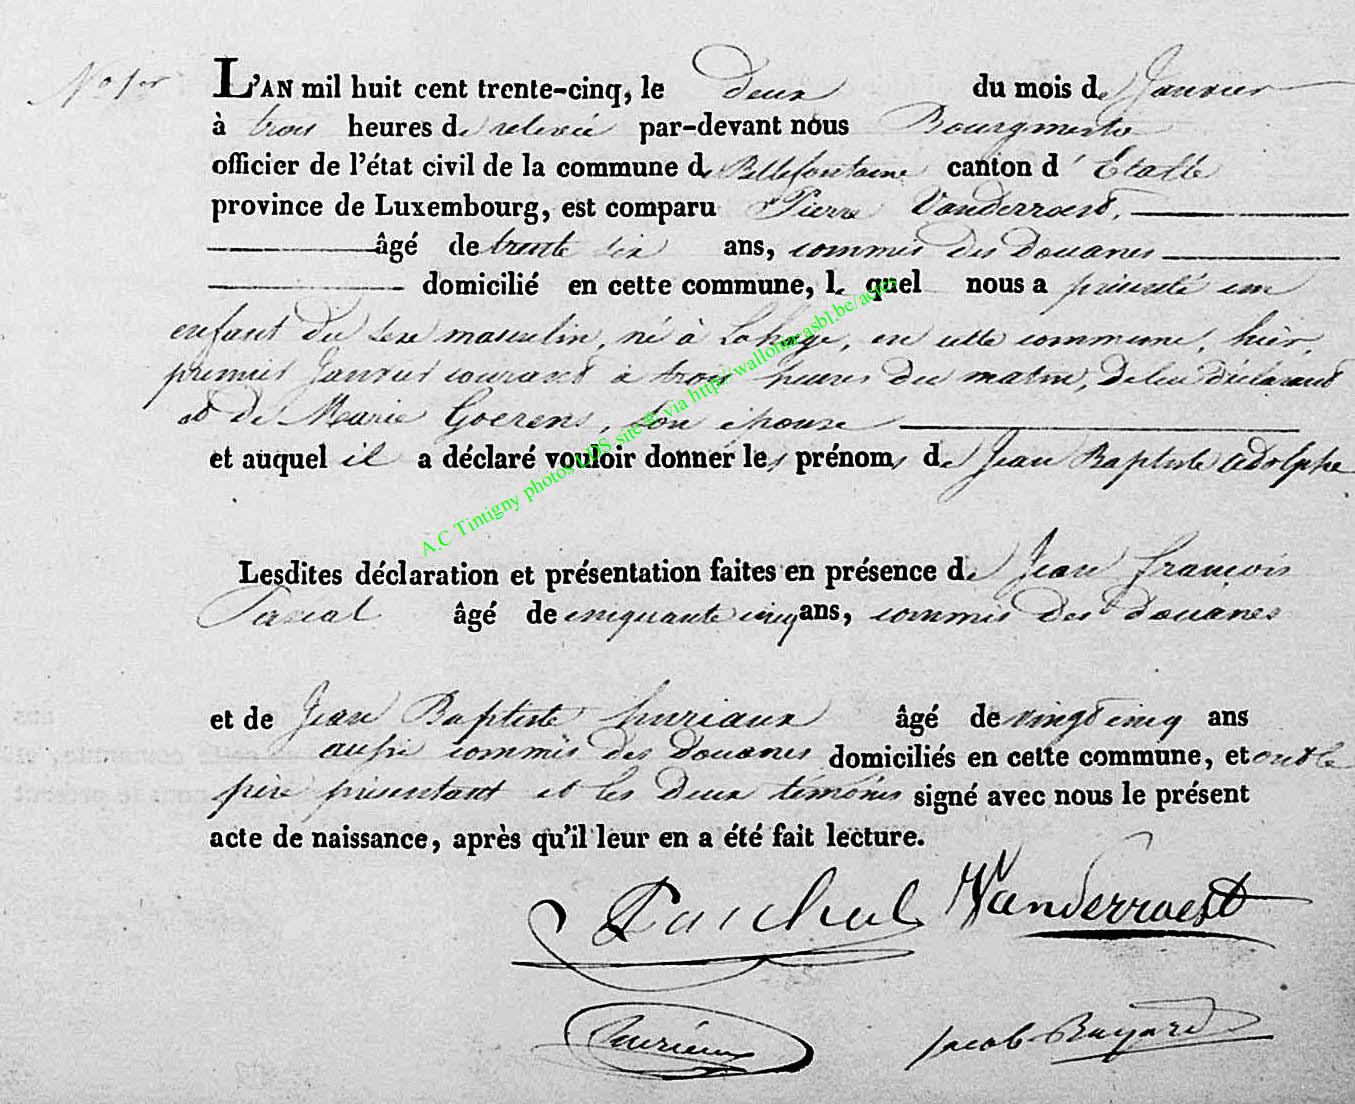 No 1er L'AN mil huit cent trente-cinq, le deux du mois de Janvier
à trois heures de relevée par-devant nous Bourgmestre
officier de l'état civil de la commune de Bellefontaine canton d'Étalle
province de Luxembourg, est comparu Pierre Vanderroest,
âgé de trente six ans, commis des douanes
domicilié en cette commune, le quel nous a présenté un
enfant du sexe masculin, né à Lahage, en cette commune, hier,
premier Janvier courant à trois heures du matin, de lui déclarant
et de Marie Goerens, son épouse
et auquel il a déclaré vouloir donner les prénoms de Jean Baptiste Adolphe
Lesdites déclaration et présentation faites en présence de Jean François
Pascal âgé de cinquante cinq ans, commis des douanes
et de Jean Baptiste huriaux âgé de vingt cinq ans
aussi commis des douanes domiciliés en cette commune, et ont le
père présentant et les deux témoins signé avec nous le présent
acte de naissance, après qu'il leur en a été fait lecture.
Paschal Vanderroest
Jacob Bayard
A.C Tintigny photos LDS site © via http://wallonia-asbl.be/actes